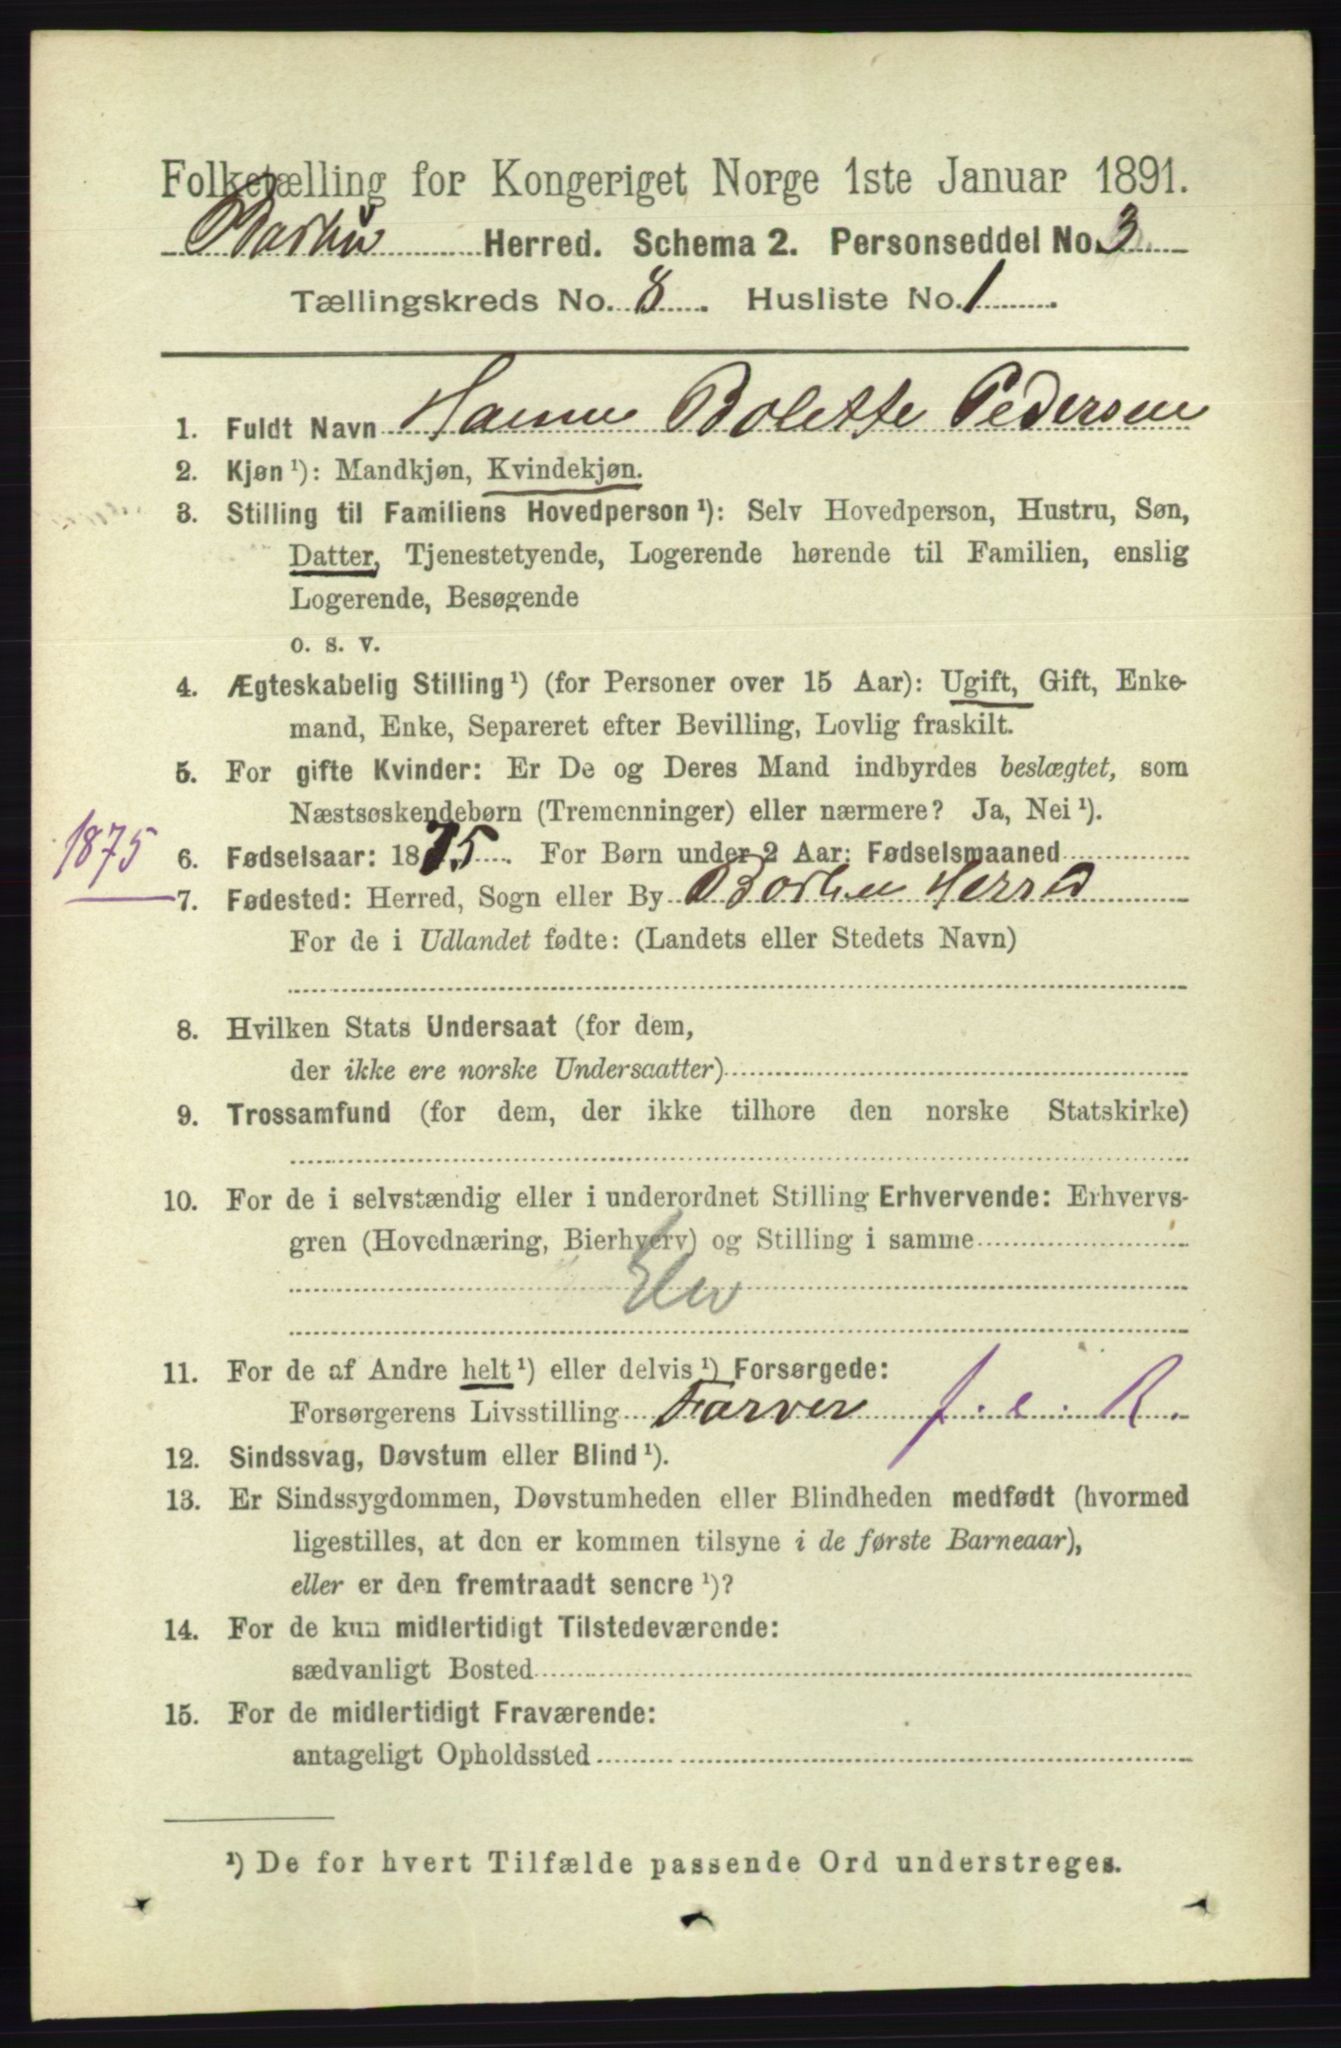 Folketælling for Kongeriget Norge 1ste Januar 1891.
Barbu Herred. Schema 2. Personseddel No. 3
Tællingskreds No. 8. Husliste No. 1.
1. Fuldt Navn Hanne Bolette Pedersen
2. Kjøn ¹): Mandkjøn, Kvindekjøn.
3. Stilling til Familiens Hovedperson ¹): Selv Hovedperson, Hustru, Søn,
Datter, Tjenestetyende, Logerende hørende til Familien, enslig
Logerende, Besøgende
o. s. v.
4. Ægteskabelig Stilling ¹) (for Personer over 15 Aar): Ugift, Gift, Enke-
mand, Enke, Separeret efter Bevilling, Lovlig fraskilt.
5. For gifte Kvinder: Er De og Deres Mand indbyrdes beslægtet, som
Næstsøskendebørn (Tremenninger) eller nærmere? Ja, Nei ¹).
1875
6. Fødselsaar: 1875. For Børn under 2 Aar: Fødselsmaaned
7. Fødested: Herred, Sogn eller By Barbu Herred
For de i Udlandet fødte: (Landets eller Stedets Navn)
8. Hvilken Stats Undersaat (for dem,
der ikke ere norske Undersaatter)
9. Trossamfund (for dem, der ikke tilhøre den norske Statskirke)
10. For de i selvstændig eller i underordnet Stilling Erhvervende: Erhvervs-
gren (Hovednæring, Bierhverv) og Stilling i samme
Elev
11. For de af Andre helt ¹) eller delvis ¹) Forsørgede:
Forsørgerens Livsstilling Farver f. e. R.
12. Sindssvag, Døvstum eller Blind ¹).
13. Er Sindssygdommen, Døvstumheden eller Blindheden medfødt (hvormed
ligestilles, at den er kommen tilsyne i de første Barneaar),
eller er den fremtraadt senere ¹)?
14. For de kun midlertidigt Tilstedeværende:
sædvanligt Bosted
15. For de midlertidigt Fraværende:
antageligt Opholdssted
¹) De for hvert Tilfælde passende Ord understreges.